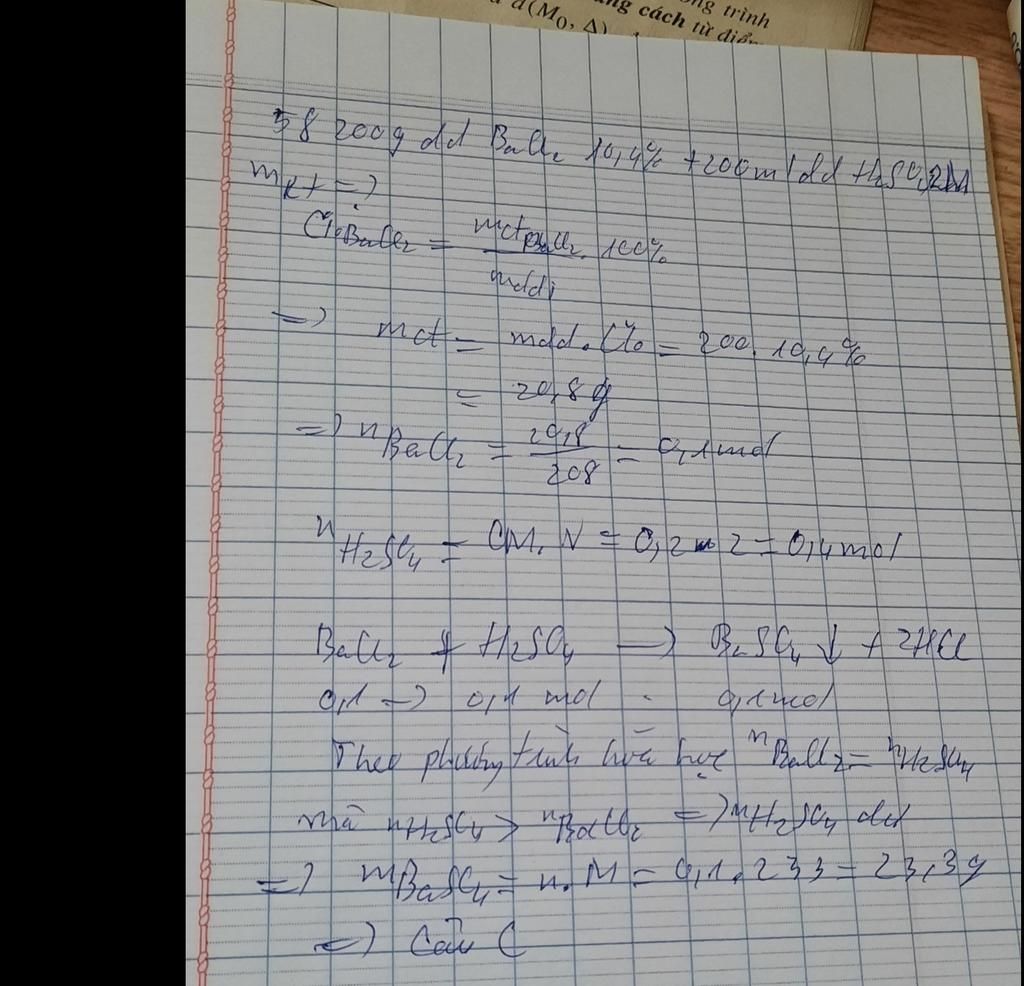 ông trình
d(M₀, Δ) ng cách từ điểm
58 200g dd BaCl₂ 10,4% + 200ml dd H₂SO₄ 2M
mkt = ?
C%BaCl₂ = mctBaCl₂ . 100%
mdd
=) mct = mdd . C% = 200 . 10,4%
= 20,8g
=) nBaCl₂ = 20,8 / 208 = 0,1 mol
nH₂SO₄ = CM. V = 0,2 . 2 = 0,4 mol
BaCl₂ + H₂SO₄ —) BaSO₄ ↓ + 2HCl
0,1 —) 0,1 mol - 0,1 mol
Theo phương trình hoá học nBaCl₂ = nH₂SO₄
mà nH₂SO₄ > nBaCl₂ =) nH₂SO₄ dư
=) mBaSO₄ = n. M = 0,1 . 233 = 23,3g
=) Câu C